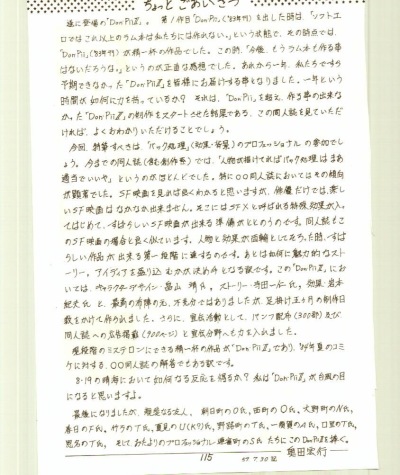 ちょっと ごあいさつ
遂に登場の『Don Pii Ⅱ』。第1作目『Don Pii』('83年刊)を出した時は、「ソフトエ
ロではこれ以上のラム本は私たちには作れない。」という状態で、その時点では、
『Don Pii』('83年刊)が精一杯の作品でした。この時、「今後、もうラム本も作る事
はないだろうな。」というのが正直な感想でした。あれから一年、私たちですら
予期できなかった『Don Pii Ⅱ』を皆様にお届けする事となりました。一年という
時間が如何に力を持っているか? それは、『Don Pii』を超え、作る事の出来な
かった『Don Pii Ⅱ』の制作をスタートさせた結果である、この同人誌を見ていただ
ければ、よくおわかりいただけることでしょう。
今回、特筆すべきは、「バック処理」(効果・背景)のプロフェッショナルの参加でし
ょう。今までの同人誌(含む創作系)では、「人物が描けてればバック処理はまあ
適当でいいや」というのがほとんどでした。特に〇〇同人誌においてはその傾向
が顕著でした。SF映画を見れば良くわかると思いますが、俳優だけでは、楽し
いSF映画はなかなか出来ません。そこにはSFXと呼ばれる特殊効果が入っ
てはじめて、すばらしいSF映画が出来る準備がととのうのです。同人誌もこ
のSF映画の場合と良く似ています。人物と効果が両輪としてそろった時、すばら
しい作品が出来る第一段階に達するのです。あとは如何に魅力的なスト
ーリー、アイディアを盛り込むかが決め手となる訳です。この『Don Pii Ⅱ』にお
いては、キャラクターデザイン・畠山 靖氏、ストーリー・
紀夫氏と、最高の布陣の元、不充分ではありましたが、足掛け五ヶ月の制作日
数をかけて作られました。さらに、宣伝活動として、パンフ配布(300部)及び
同人誌への広告掲載(900ページ)と宣伝分野へも力を入れました。
現段階のミステロンにできる精一杯の作品が『Don Pii Ⅱ』であり、'84年夏のコミ
ケに対する、〇〇同人誌の解答でもある訳です。
8・19の晴海において如何なる反応を得るか? 私は『Don Pii Ⅱ』が台風の目
になると思いますよ。
最後になりましたが、親愛なる友人、朝日町のO氏、西町のO氏、大野町のN氏、
春日のF氏、竹ラのT氏、夏見のU(K?)氏、野路町のT氏、一橋賀のA氏、口里のT氏、
忽名のT氏、そして、おたよりのプロフェッショナル・のS氏たちにこの『Don Pii Ⅱ』を捧ぐ。
115
奥田宏行
'84.7.30 記